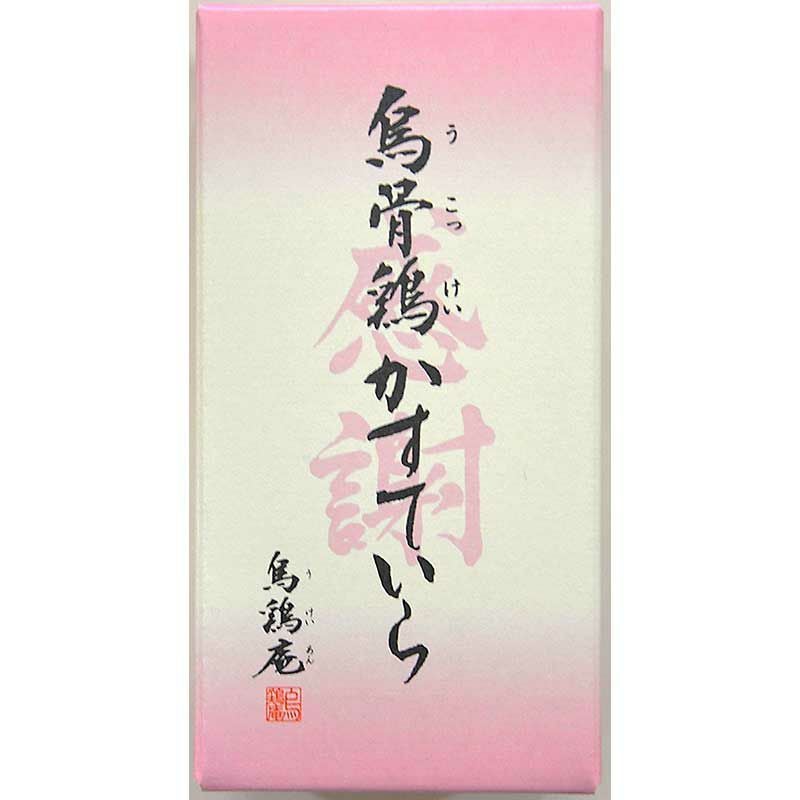 烏骨鶏かすていら
うこっけい
感謝
烏鶏庵
うけいあん